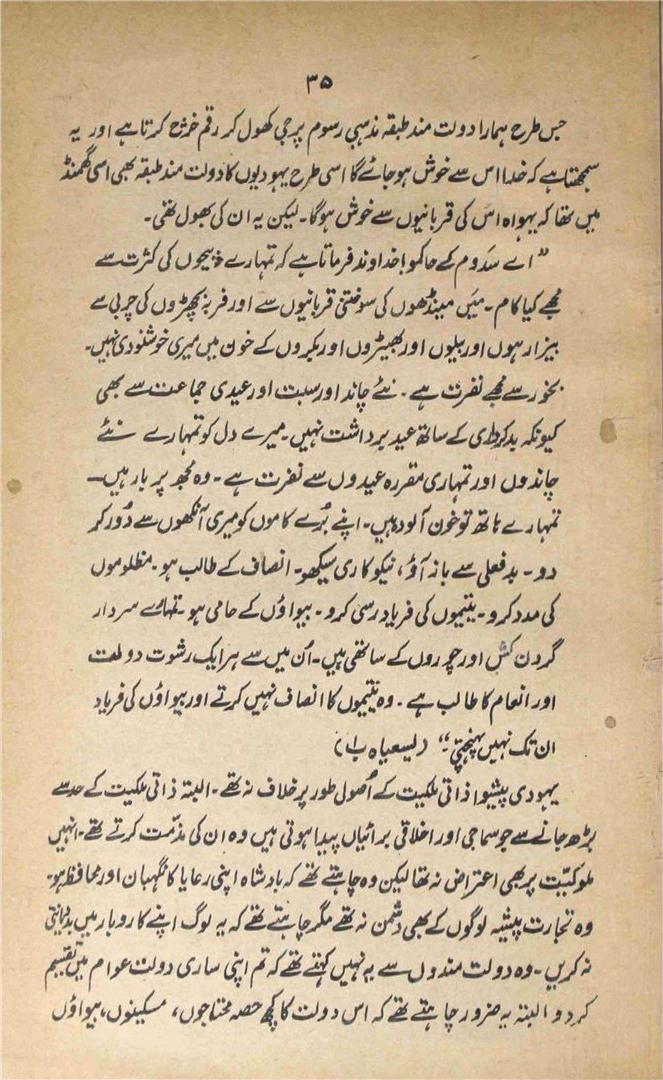 ۳۵
جس طرح ہمارا دولت مند طبقہ مذہبی رسوم پر جی کھول کر رقم خرچ کرتا ہے اور یہ
سمجھتا ہے کہ خدا اس سے خوش ہو جائے گا اسی طرح یہودیوں کا دولت مند طبقہ بھی اسی گھمنڈ
میں تھا کہ یہواہ اس کی قربانیوں سے خوش ہوگا۔ لیکن یہ ان کی بھول تھی۔
”اے سدوم کے حاکمو! خداوند فرماتا ہے کہ تمہارے ذبیحوں کی کثرت سے
مجھے کیا کام۔ میں مینڈھوں کی سوختنی قربانیوں سے اور فربہ بچھڑوں کی چربی سے
بیزار ہوں اور بیلوں اور بھیڑوں اور بکروں کے خون میں میری خوشنودی نہیں۔
بخور سے مجھے نفرت ہے۔ نئے چاند اور سبت اور عیدی جماعت سے بھی
کیونکہ بدکرداری کے ساتھ عید برداشت نہیں۔ میرے دل کو تمہارے نئے
چاندوں اور تمہاری مقررہ عیدوں سے نفرت ہے۔ وہ مجھ پر بار ہیں۔
تمہارے ہاتھ تو خون آلود ہیں۔ اپنے بُرے کاموں کو میری آنکھوں سے دُور کر
دو۔ بدفعلی سے باز آؤ، نیکوکاری سیکھو۔ انصاف کے طالب ہو۔ مظلوموں
کی مدد کرو۔ یتیموں کی فریاد رسی کرو۔ بیواؤں کے حامی ہو۔ تمہارے سردار
گردن کش اور چوروں کے ساتھی ہیں۔ اُن میں سے ہر ایک رشوت دولعت
اور انعام کا طالب ہے۔ وہ یتیموں کا انصاف نہیں کرتے اور بیواؤں کی فریاد
ان تک نہیں پہنچتی۔“ (یسعیاہ ب۱)
یہودی پیشوا ذاتی ملکیت کے اُصول طور پر خلاف نہ تھے۔ البتہ ذاتی ملکیت کے حد سے
بڑھ جانے سے جو سماجی اور اخلاقی برائیاں پیدا ہوتی ہیں وہ ان کی مذمّت کرتے تھے۔ انہیں
ملوکیّت پر بھی اعتراض نہ تھا لیکن وہ چاہتے تھے کہ بادشاہ اپنی رعایا کا نگہبان اور محافظ ہو۔
وہ تجارت پیشہ لوگوں کے بھی دشمن نہ تھے مگر چاہتے تھے کہ یہ لوگ اپنے کاروبار میں بددیانتی
نہ کریں۔ وہ دولت مندوں سے یہ نہیں کہتے تھے کہ تم اپنی ساری دولت عوام میں تقسیم
کردو البتہ یہ ضرور چاہتے تھے کہ اس دولت کا کچھ حصہ محتاجوں، مسکینوں، بیواؤں